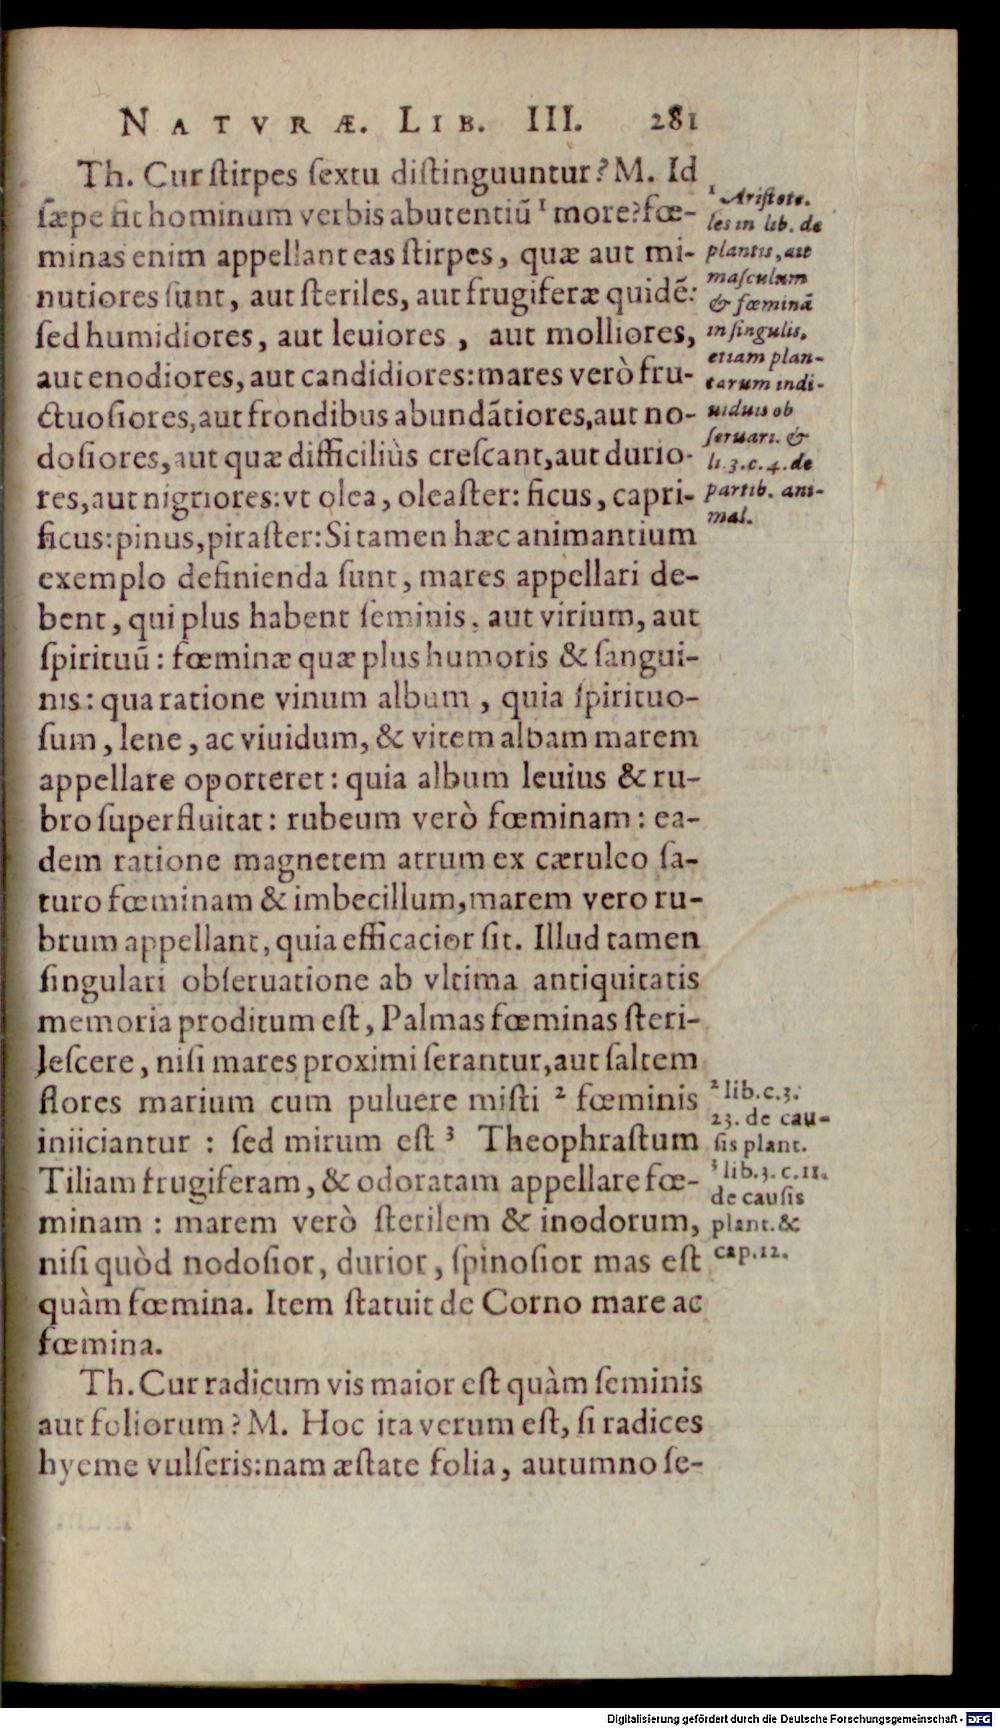 NATVRÆ. LIB. III. 281
Th. Cur ſtirpes ſextu diſtinguuntur? M. Id
ſæpe fit hominum verbis abutentiũ ¹ more? fœ-
minas enim appellant eas ſtirpes, quæ aut mi-
nutiores ſunt, aut ſteriles, aut frugiferæ quidẽ:
ſed humidiores, aut leuiores, aut molliores,
aut enodiores, aut candidiores: mares verò fru-
ctuoſiores, aut frondibus abundãtiores, aut no-
doſiores, aut quæ difficiliùs creſcant, aut durio-
res, aut nigriores: vt olea, oleaſter: ficus, capri-
ficus: pinus, piraſter: Si tamen hæc animantium
exemplo definienda ſunt, mares appellari de-
bent, qui plus habent ſeminis, aut virium, aut
ſpirituũ: fœminæ quæ plus humoris & ſangui-
nis: qua ratione vinum album, quia ſpirituo-
ſum, lene, ac viuidum, & vitem albam marem
appellare oporteret: quia album leuius & ru-
bro ſuperfluitat: rubeum verò fœminam: ea-
dem ratione magnetem atrum ex cæruleo ſa-
turo fœminam & imbecillum, marem vero ru-
brum appellant, quia efficacior ſit. Illud tamen
ſingulari obſeruatione ab vltima antiquitatis
memoria proditum eſt, Palmas fœminas ſteri-
leſcere, niſi mares proximi ſerantur, aut ſaltem
flores marium cum puluere miſti ² fœminis
iniiciantur: ſed mirum eſt ³ Theophraſtum
Tiliam frugiferam, & odoratam appellare fœ-
minam: marem verò ſterilem & inodorum,
niſi quòd nodoſior, durior, ſpinoſior mas eſt
quàm fœmina. Item ſtatuit de Corno mare ac
fœmina.
Th. Cur radicum vis maior eſt quàm ſeminis
aut foliorum? M. Hoc ita verum eſt, ſi radices
hyeme vulſeris: nam æſtate folia, autumno ſe-
¹ Ariſtote.
les in lib. de
plantis, ait
maſculum
& fœminã
in ſingulis,
etiam plan-
tarum indi-
uiduis ob
ſeruari. &
li. 3. c. 4. de
partib. ani-
mal.
² lib. c. 3.
23. de cau-
ſis plant.
³ lib. 3. c. 11.
de cauſis
plant. &
cap. 12.
Digitalisierung gefördert durch die Deutsche Forschungsgemeinschaft - DFG